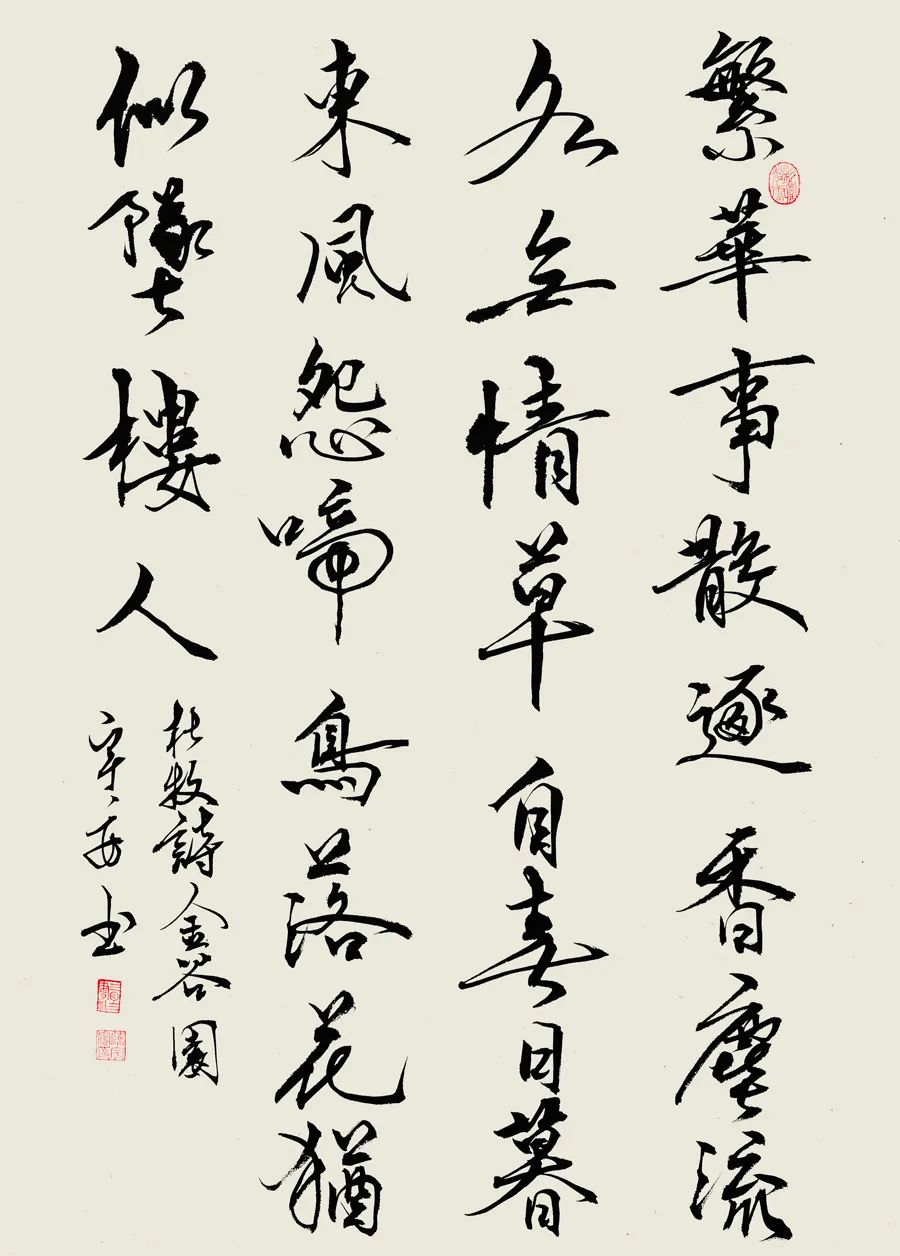 繁華事散逐香塵流
水無情草自春日暮
東風怨啼鳥落花猶
似墜樓人
杜牧詩金谷園
书